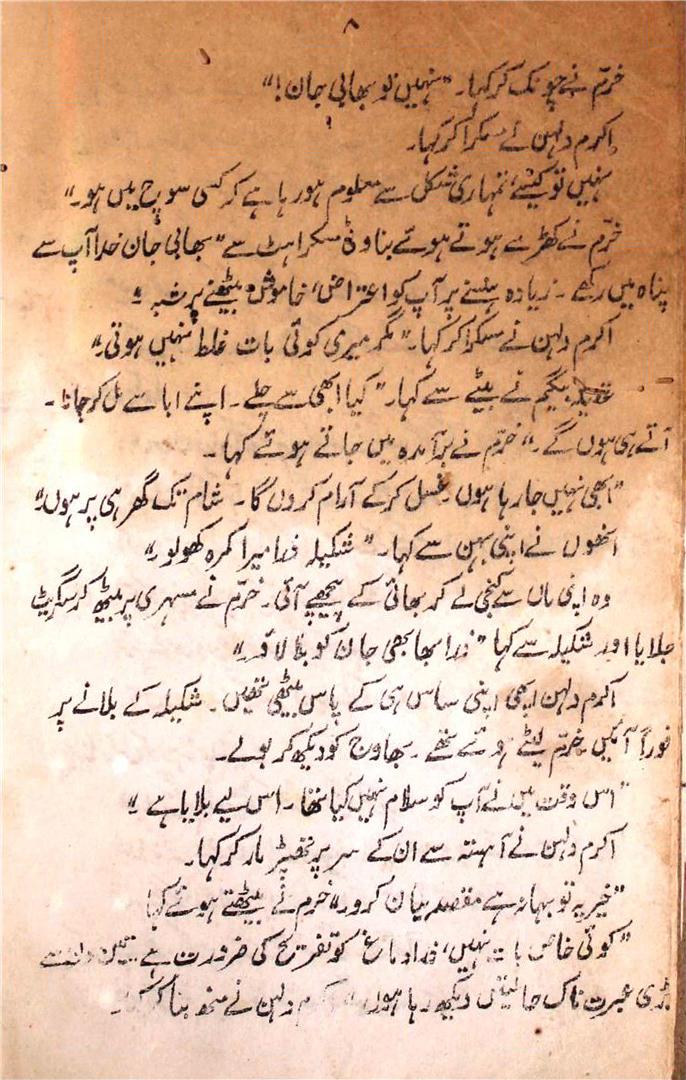 ۸
خرّم نے چونک کر کہا۔ "نہیں تو بھابی جان!"
اکرم دلہن نے مسکرا کر کہا۔
نہیں تو کیسے، تمہاری شکل سے معلوم ہو رہا ہے کہ کسی سوچ میں ہو۔"
خرّم نے کھڑے ہوتے ہوئے بناوٹی مسکراہٹ سے "بھابی جان خدا آپ سے
پناہ میں رکھے۔ زیادہ ہنسنے پر آپ کو اعتراض، خاموش بیٹھنے پر شبہ"
اکرم دلہن نے مسکرا کر کہا۔ "مگر میری کوئی بات غلط نہیں ہوتی۔"
بیگم نے بیٹے سے کہا۔ "کیا ابھی سے چلے۔ اپنے ابا سے مل کر جانا۔
آتے ہی ہوں گے۔" خرّم نے برآمدہ میں جاتے ہوئے کہا۔
"ابھی نہیں جا رہا ہوں۔ غسل کر کے آرام کروں گا۔ شام تک گھر ہی پر ہوں۔"
انھوں نے اپنی بہن سے کہا۔ "شکیلہ ذرا میرا کمرہ کھولو۔"
وہ اپنی ماں سے کنجی لے کر بھائی کے پیچھے آئی۔ خرّم نے مسہری پر بیٹھ کر سگریٹ
جلایا اور شکیلہ سے کہا "ذرا بھابھی جان کو بلا لاؤ۔"
اکرم دلہن ابھی اپنی ساس ہی کے پاس بیٹھی تھیں۔ شکیلہ کے بلانے پر
فوراً آئیں۔ خرّم لیٹے ہوئے تھے۔ بھاوج کو دیکھ کر بولے۔
"اس وقت میں نے آپ کو سلام نہیں کیا تھا۔ اس لیے بلایا ہے۔"
اکرم دلہن نے آہستہ سے ان کے سر پر تھپڑ مار کر کہا۔
"خیر یہ تو بہانہ ہے مقصد بیان کرو۔" خرم نے بیٹھتے ہوئے کہا
"کوئی خاص بات نہیں، ذرا دماغ کو تفریح کی ضرورت ہے تین دن سے
بڑی عبرت ناک حالتیں دیکھ رہا ہوں" اکرم دلہن نے منھ بنا کر کہا۔